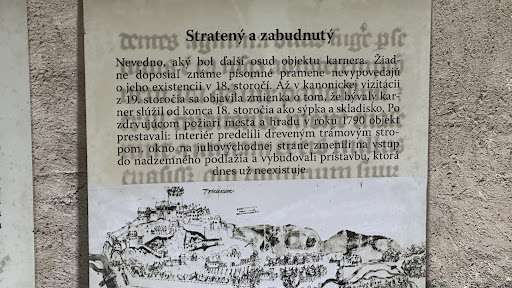 Stratený a zabudnutý
Nevedno, aký bol ďalší osud objektu karnera. Žiad-
ne doposiaľ známe písomné pramene nevypovedajú
o jeho existencii v 18. storočí. Až v kanonickej vizitácii
z 19. storočia sa objavila zmienka o tom, že bývalý kar-
ner slúžil od konca 18. storočia ako sýpka a skladisko. Po
zdrvujúcom požiari mesta a hradu v roku 1790 objekt
prestavali: interiér predelili dreveným trámovým stro-
pom, okno na juhovýchodnej strane zmenili na vstup
do nadzemného podlažia a vybudovali prístavbu, ktorá
dnes už neexistuje.